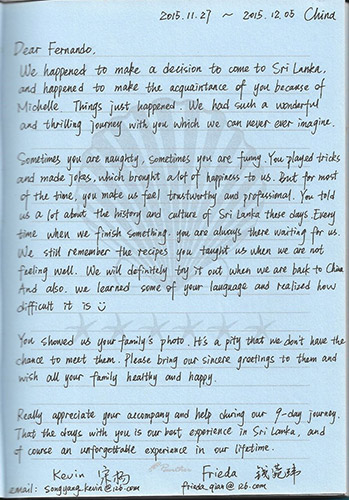 2015.11.27 ~ 2015.12.05 China
Dear Fernando,
We happened to make a decision to come to Sri Lanka,
and happened to make the acquaintance of you because of
Michelle. Things just happened. We had such a wonderful
and thrilling journey with you which we can never ever imagine.
Sometimes you are naughty, sometimes you are funny. You played tricks
and made jokes, which brought a lot of happiness to us. But for most
of the time, you make us feel trustworthy and professional. You told
us a lot about the history and culture of Sri Lanka these days. Every
time when we finish something. you are always there waiting for us.
We still remember the recipes you taught us when we are not
feeling well. We will definitely try it out when we are back to China
And also. we learned some of your language and realized how
difficult it is
You showed us your family's photo. It's a pity that we don't have the
chance to meet them. Please bring our sincere greetings to them and
wish all your family healthy and happy.
Really appreciate your accompany and help during our 9-day journey.
That the days with you is our best experience in Sri Lanka, and
of course an unforgottable experience in our lifetime.
Kevin Frieda
email: songyang.kevin@126.com frieda_qian@126.com